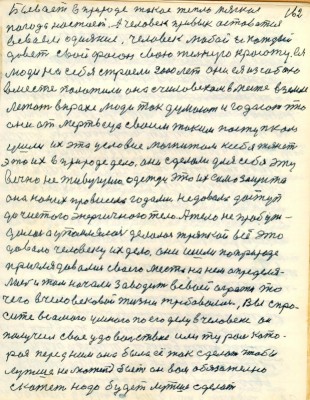 Бывает в природе такое тепло тяжкая
162
погода настает. А человек привык оставатся
в своем одияние. Человек любой и каждый
давит свой фасон свою тижилую красоту, вся
люди на себя строели 2000 лет они ея из себя по
вместе политили она с человеком в лежа в земле
летат в прахе люди так думают и гадают что
они от мертвеца своим таким поступком
ушли их это условие магнитом к себя тянет
это их в природе дело, они сделали для себя эту
вечно не живущую одежду это их самозащита
она на них провисела годами недовала доступ
до чистого энергичного тело. А тело не пробуж-
далось а утомлялось делалося тряпкой всё это
давало человеку их дело, они ишли по природе
приглядовали своего места на нем определя-
лись и там начали заводить в своей ограде то
чего в человеческой жизни требовалось, Вы спро-
сите всякого умного по его делу в человеке он
получил свое удовольствие или ту роль кото-
рая перед ним она была её так сделать чтобы
лутше не может быть он вам обязательно
скажет надо будет лутше сделать